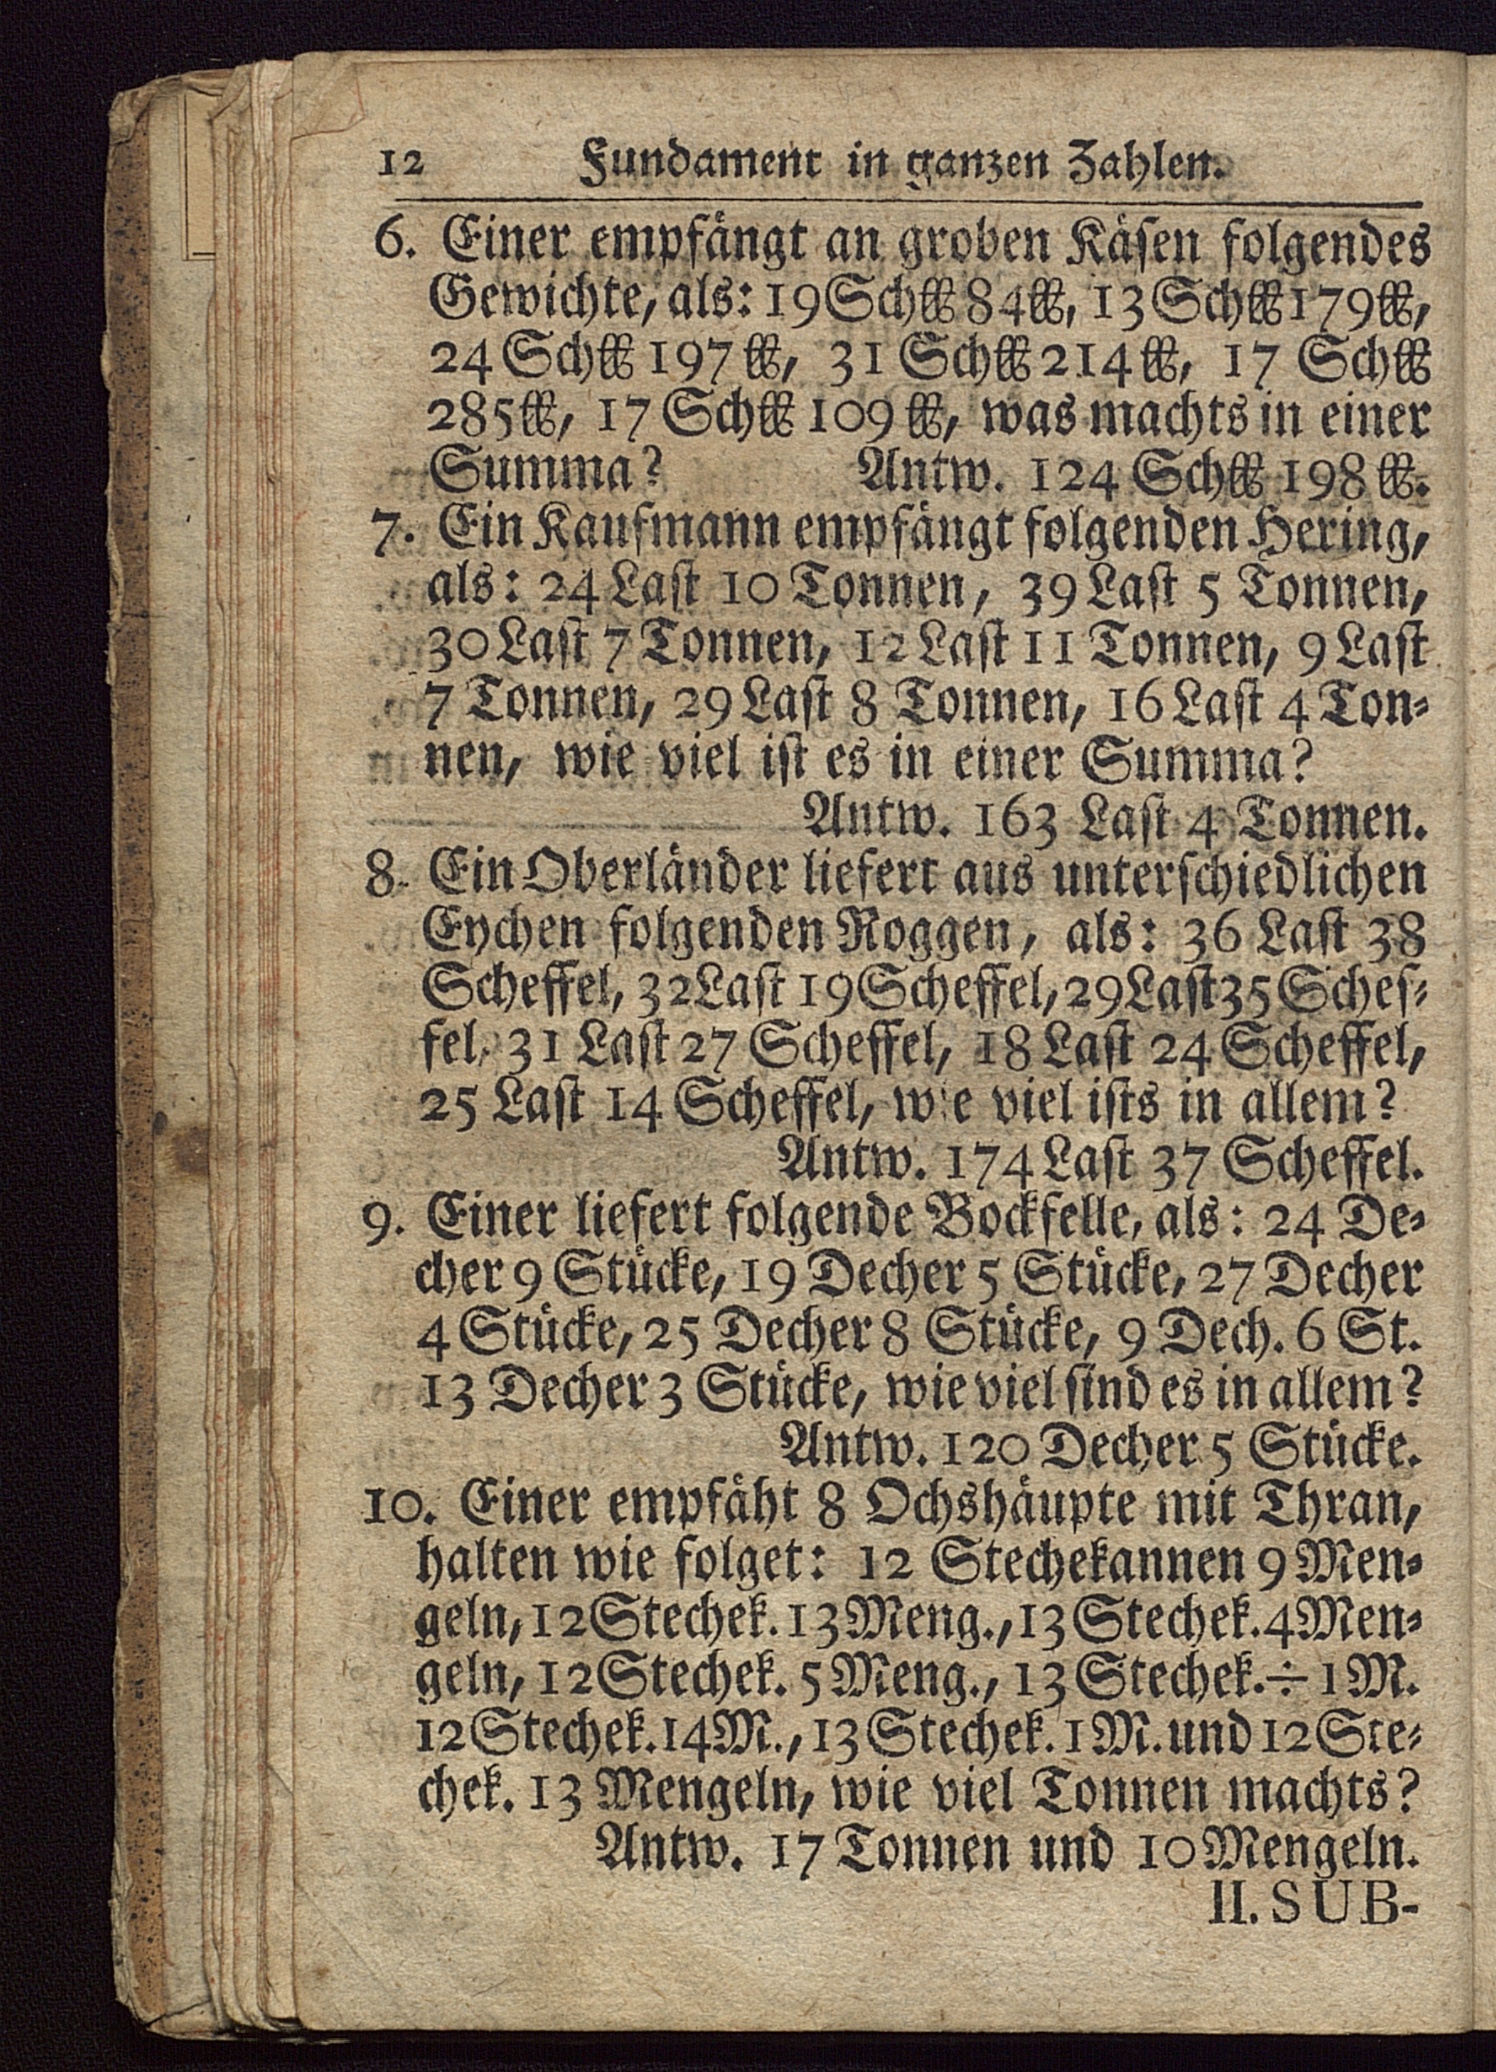 12 Fundament in ganzen Zahlen.
6. Einer empfängt an groben Käsen folgendes
Gewichte, als: 19 Sch℔ 84 ℔, 13 Sch℔ 179 ℔,
24 Sch℔ 197 ℔, 31 Sch℔ 214 ℔, 17 Sch℔
285 ℔, 17 Sch℔ 109 ℔, was machts in einer
Summa? Antw. 124 Sch℔ 198 ℔.
7. Ein Kaufmann empfängt folgenden Hering,
als: 24 Last 10 Tonnen, 39 Last 5 Tonnen,
30 Last 7 Tonnen, 12 Last 11 Tonnen, 9 Last
7 Tonnen, 29 Last 8 Tonnen, 16 Last 4 Ton-
nen, wie viel ist es in einer Summa?
Antw. 163 Last 4 Tonnen.
8. Ein Oberländer liefert aus unterschiedlichen
Eychen folgenden Roggen, als: 36 Last 38
Scheffel, 32 Last 19 Scheffel, 29 Last 35 Schef-
fel, 31 Last 27 Scheffel, 18 Last 24 Scheffel,
25 Last 14 Scheffel, wie viel ists in allem?
Antw. 174 Last 37 Scheffel.
9. Einer liefert folgende Bockfelle, als: 24 De-
cher 9 Stücke, 19 Decher 5 Stücke, 27 Decher
4 Stücke, 25 Decher 8 Stücke, 9 Dech. 6 St.
13 Decher 3 Stücke, wie viel sind es in allem?
Antw. 120 Decher 5 Stücke.
10. Einer empfäht 8 Ochshäupte mit Thran,
halten wie folget: 12 Stechekannen 9 Men-
geln, 12 Stechek. 13 Meng., 13 Stechek. 4 Men-
geln, 12 Stechek. 5 Meng., 13 Stechek. ÷ 1 M.
12 Stechek. 14 M., 13 Stechek. 1 M. und 12 Ste-
chek. 13 Mengeln, wie viel Tonnen machts?
Antw. 17 Tonnen und 10 Mengeln.
II. SUB-